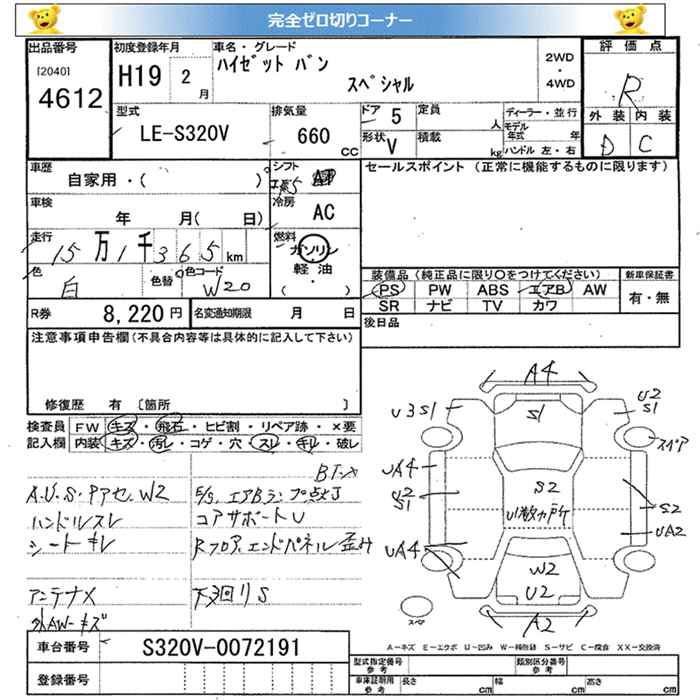 完全ゼロ切りコーナー
出品番号 初度登録年月 車名・グレード 評価点
[2040] 4612
H19 2月
ハイゼット バン
スペシャル
2WD・4WD
R
外装 内装
D C
型式 排気量 ドア 5 定員 人 ディーラー・並行
LE-S320V 660 CC
形状 V 積載 kg モデル年式 年
ハンドル 左・右
車歴 自家用・( )
シフト AT
セールスポイント (正常に機能するものに限ります)
車検 年 月( 日)
冷房 AC
走行 15万1千365km
燃料 ガソリン 軽油 ・ ( )
色 白 色替 色コード W20
装備品 (純正品に限り○をつけてください) 新車保証書
PS PW ABS エアB AW 有・無
SR ナビ TV カワ
R券 8,220円 名変通知期限 月 日
後日品
注意事項申告欄(不具合内容等は具体的に記入して下さい)
修復歴 有 〔箇所 〕
検査員記入欄 FW キズ・飛石・ヒビ割・リペア跡・×要
内装 キズ・汚レ・コゲ・穴・スレ・キレ・破レ
A.U.S.Pアセ.W2
ハンドルスレ
シートキレ
アンテナX
外AW-キズ
エアB.ラ
コアサポートU
Rフロア.エンドパネル歪み
下廻りS
A4
U3S1 S1 U2 S1
スペア
UA4
S2 S1 S2 S2
U1数ヵ所 UA2
UA4
W2
U2
A2
スペア
A-キズ E-エクボ U-凹み W-補修跡 S-サビ C-腐食 XX-交換済
車台番号 S320V-0072191
登録番号
型式指定番号 参考 類別区分番号 参考
車庫証明用 参考 長さ cm 幅 cm 高さ cm